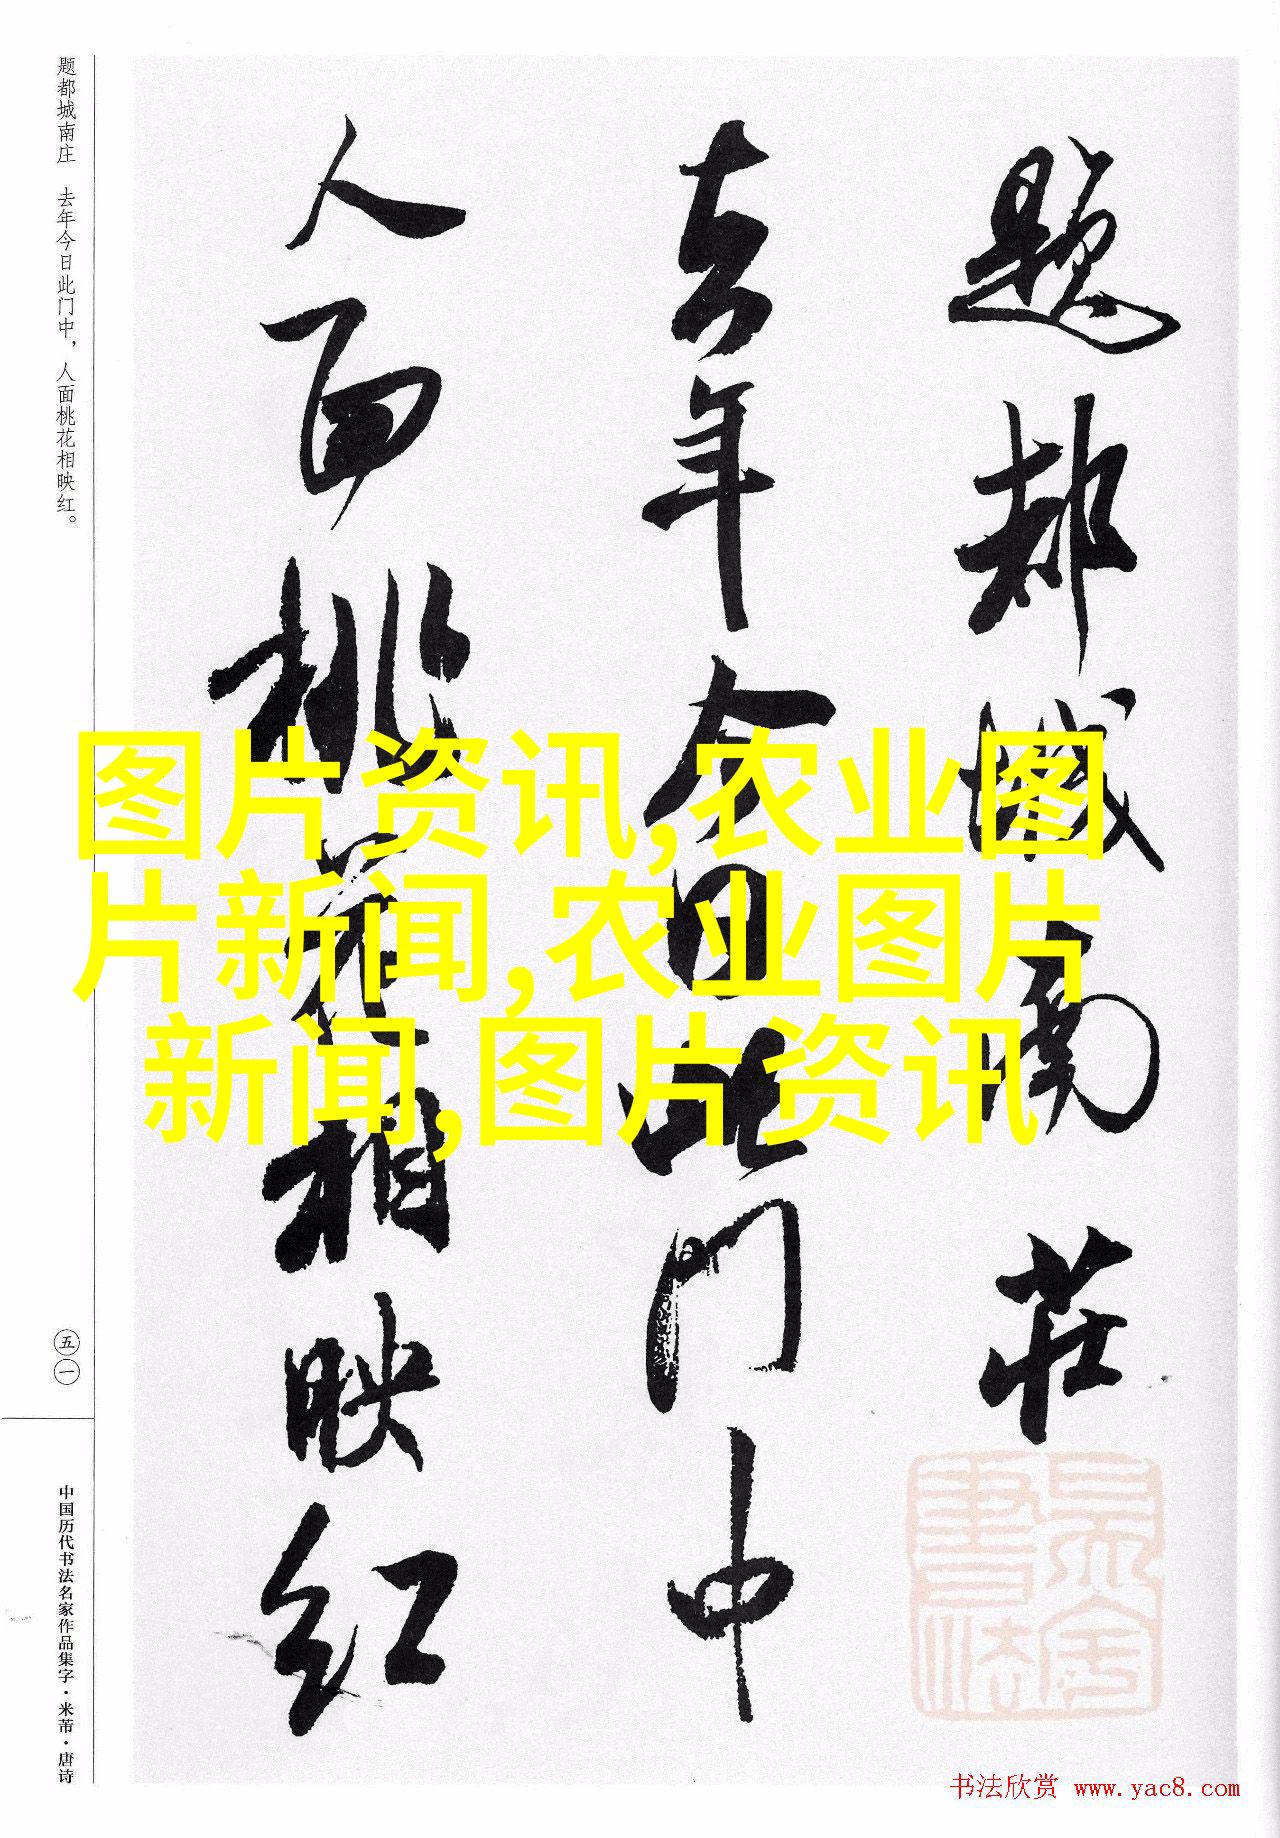 题都城南莊
去年今日此门中
人面桃花相映红
题都城南庄　去年今日此门中，人面桃花相映红。
五一
中国历代书法名家作品集字·米芾·唐诗
图片资讯,农业图
片新闻,农业图片
新闻,图片资讯
书法欣赏 www.yac8.com